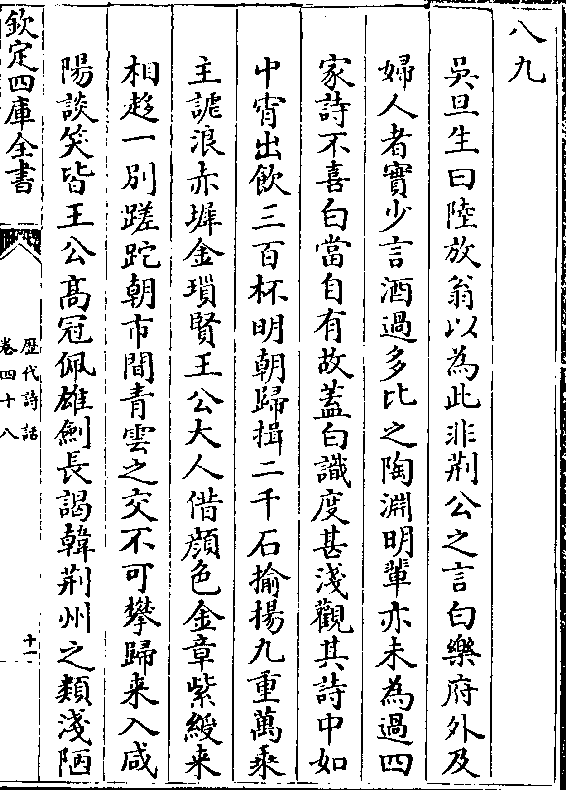 八九
吳旦生曰陸放翁以為此非荆公之言白樂府外及
婦人者實少言酒過多比之陶淵明輩亦未為過四
家詩不喜白當自有故蓋白識度甚淺觀其詩中如
中宵出飲三百杯明朝歸揖二千石揄揚九重萬乘
主謔浪赤墀金瑣賢王公大人借顔色金章紫綬来
相趍一別蹉跎朝市間青雲之交不可攀歸来入咸
陽談笑皆王公髙冠佩雄劍長謁韓荆州之類淺陋
欽定四庫全書
歴代詩話
卷四十八
十一